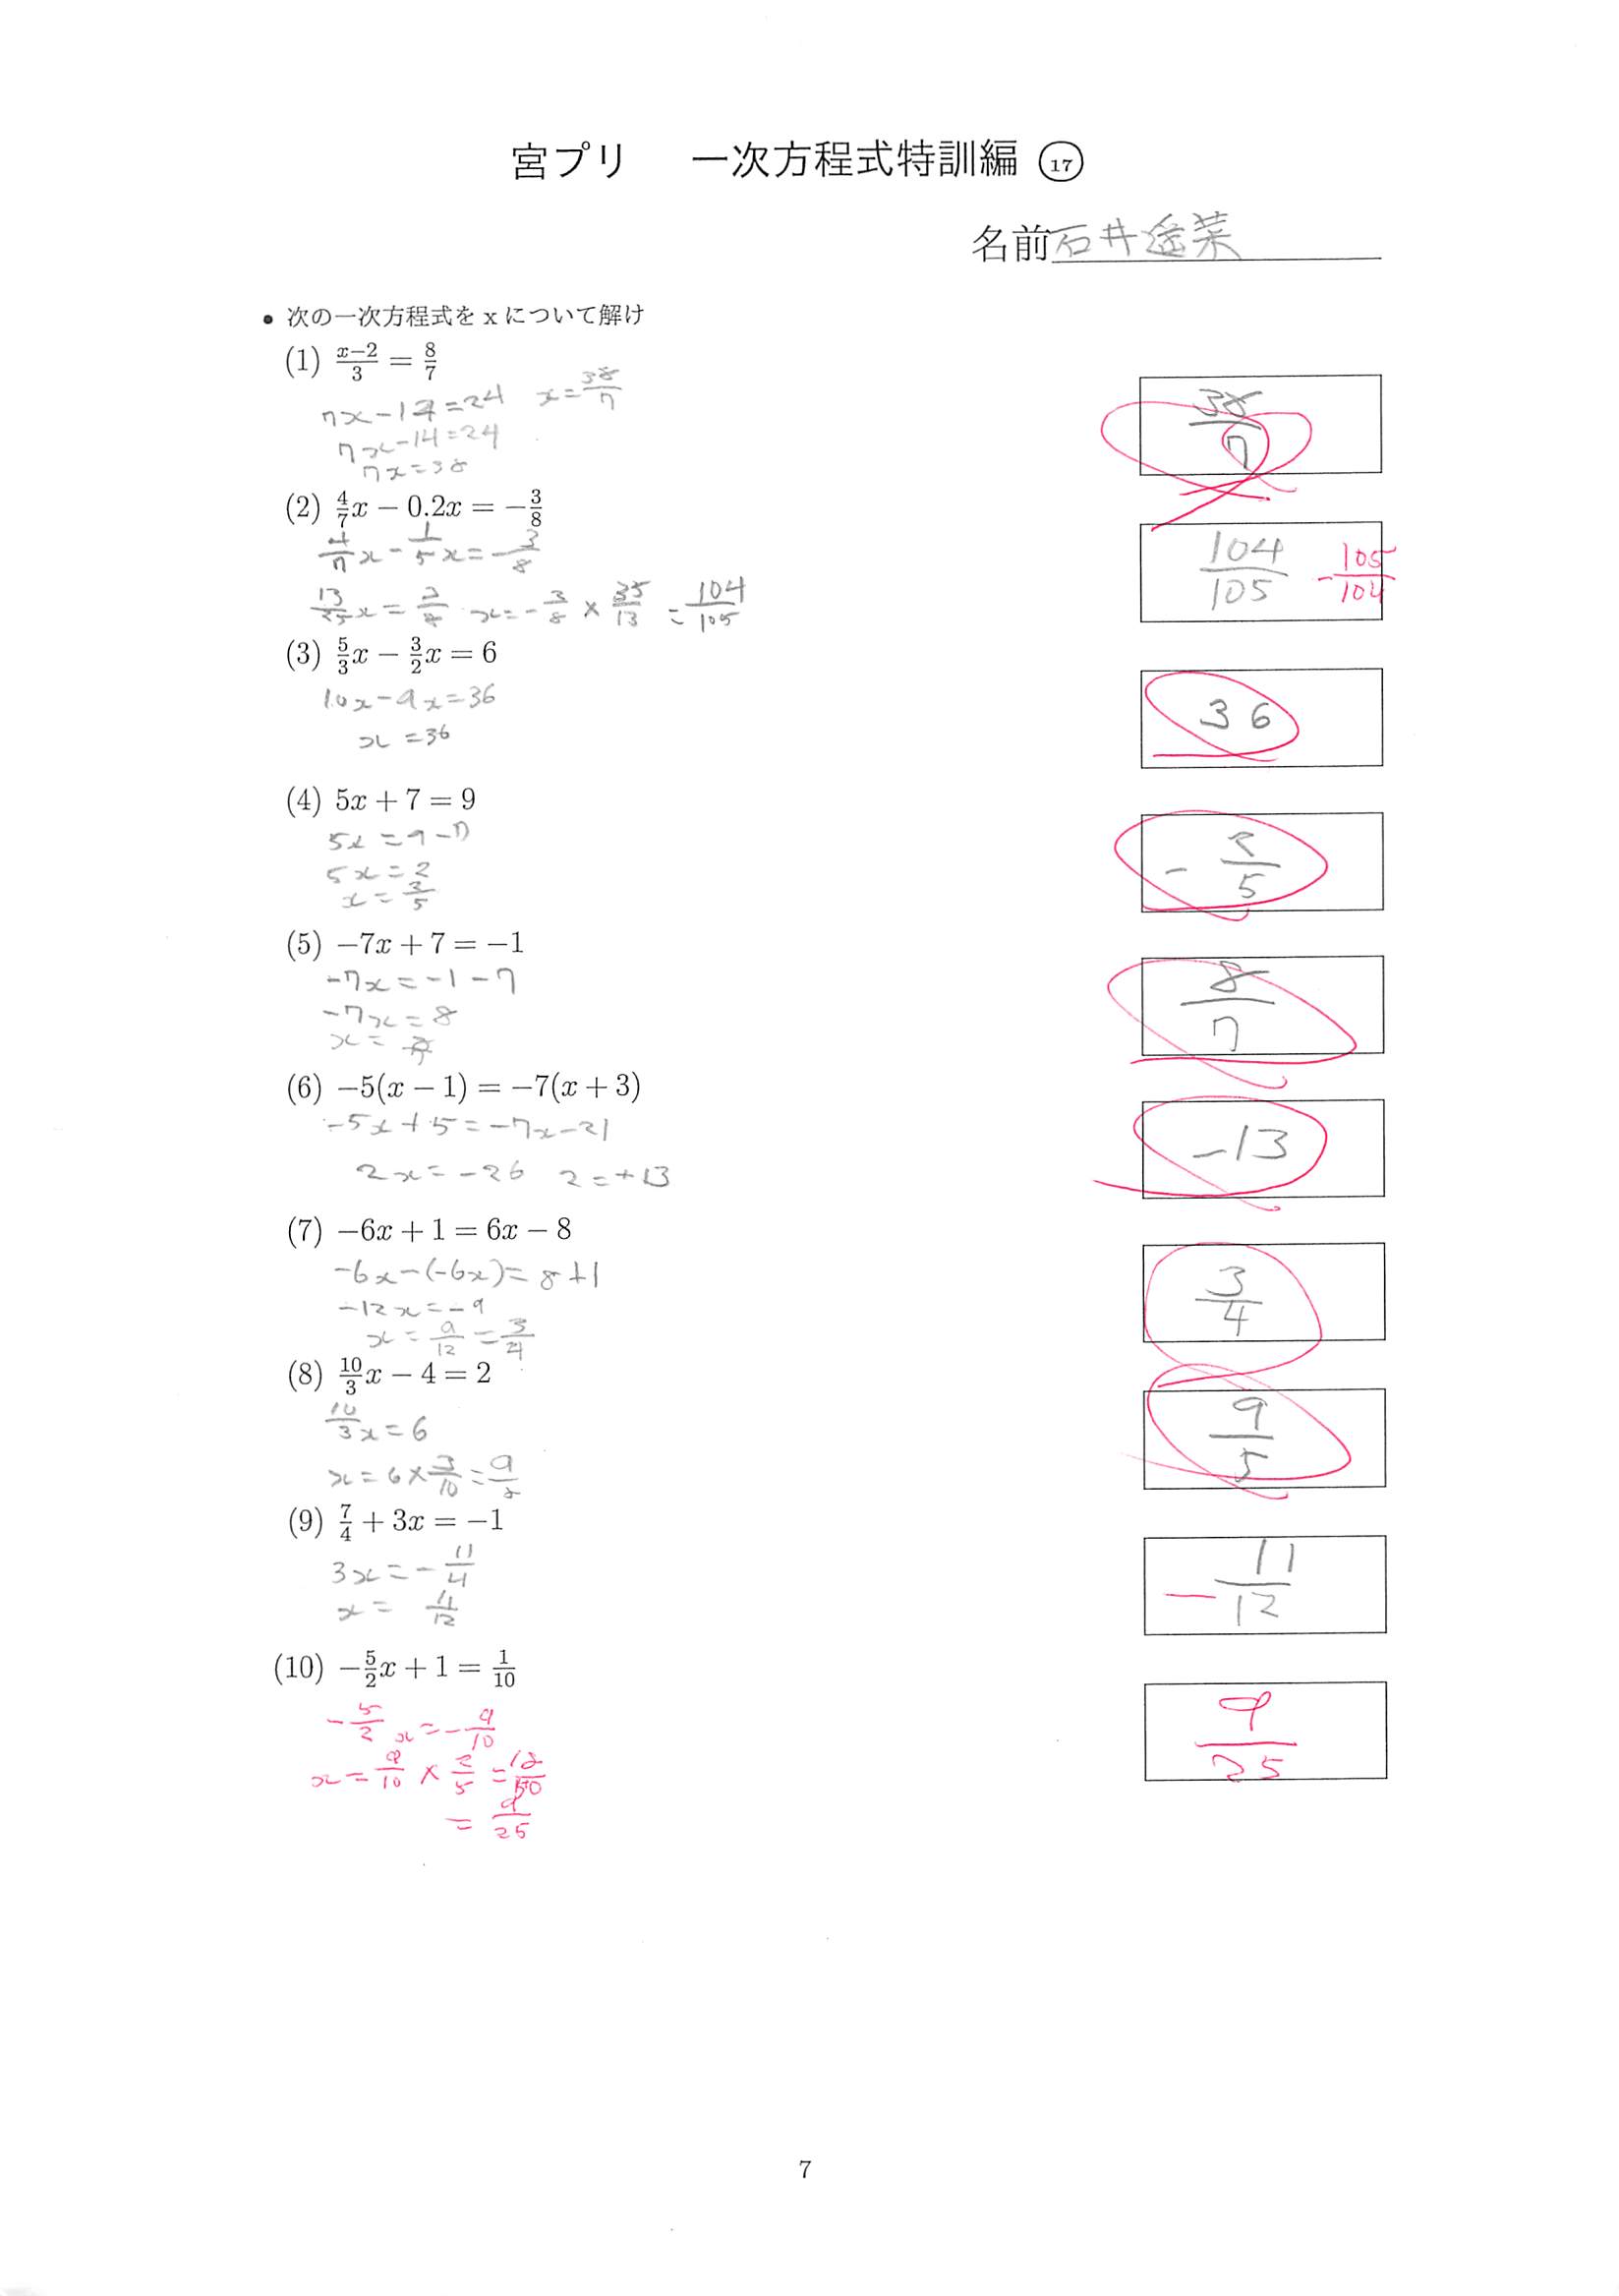 宮プリ 一次方程式特訓編 ⑰
名前 石井遥菜
• 次の一次方程式を x について解け
(1) \frac{x-2}{3} = \frac{8}{7}
7x-14=24 x=\frac{38}{7}
7x-14=24
7x=38
\frac{38}{7}
(2) \frac{4}{7}x - 0.2x = -\frac{3}{8}
\frac{4}{7}x - \frac{1}{5}x = -\frac{3}{8}
\frac{13}{35}x = \frac{3}{8} x=-\frac{3}{8} × \frac{35}{13} = \frac{104}{105}
\frac{104}{105} -\frac{105}{104}
(3) \frac{5}{3}x - \frac{3}{2}x = 6
10x-9x=36
x=36
36
(4) 5x + 7 = 9
5x=9-7
5x=2
x=\frac{2}{5}
-\frac{2}{5}
(5) −7x + 7 = −1
-7x=-1-7
-7x=8
\frac{8}{7}
(6) −5(x − 1) = −7(x + 3)
-5x+5=-7x-21
2x=-26 2=+13
-13
(7) −6x + 1 = 6x − 8
-6x-(-6x)=8+1
-12x=-9
x=\frac{9}{12}=\frac{3}{4}
\frac{3}{4}
(8) \frac{10}{3}x − 4 = 2
\frac{10}{3}x=6
x=6×\frac{3}{10}=\frac{9}{5}
\frac{9}{5}
(9) \frac{7}{4} + 3x = −1
3x=-\frac{11}{4}
x= \frac{11}{12}
-\frac{11}{12}
(10) −\frac{5}{2}x + 1 = \frac{1}{10}
-\frac{5}{2}x=-\frac{9}{10}
x=\frac{9}{10}×\frac{2}{5}=\frac{18}{50}
=\frac{9}{25}
\frac{9}{25}
7